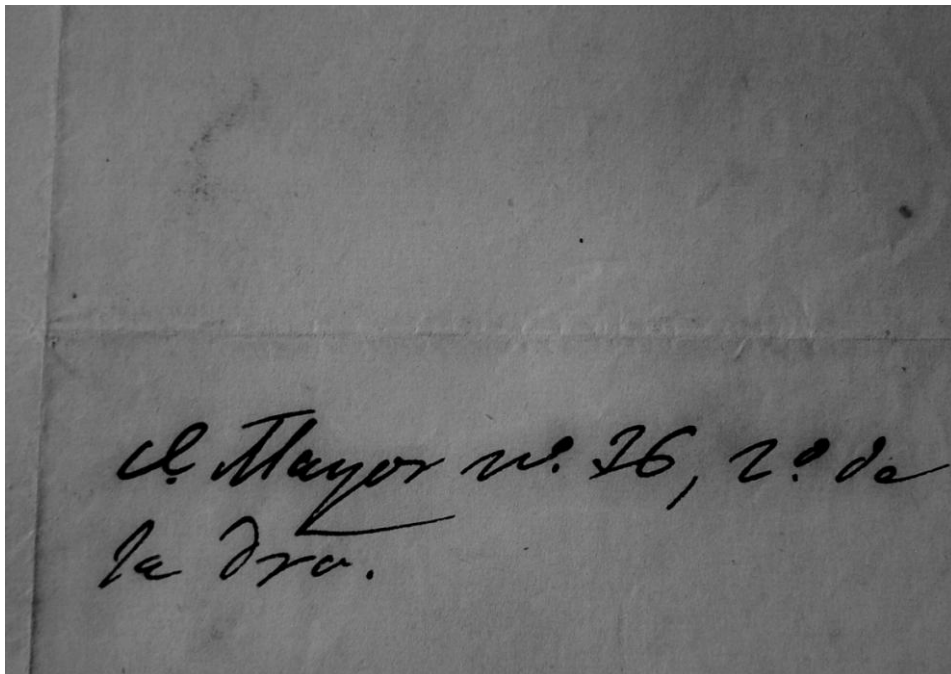 Cl. Mayor nº. 36, 2º. de
la dra.